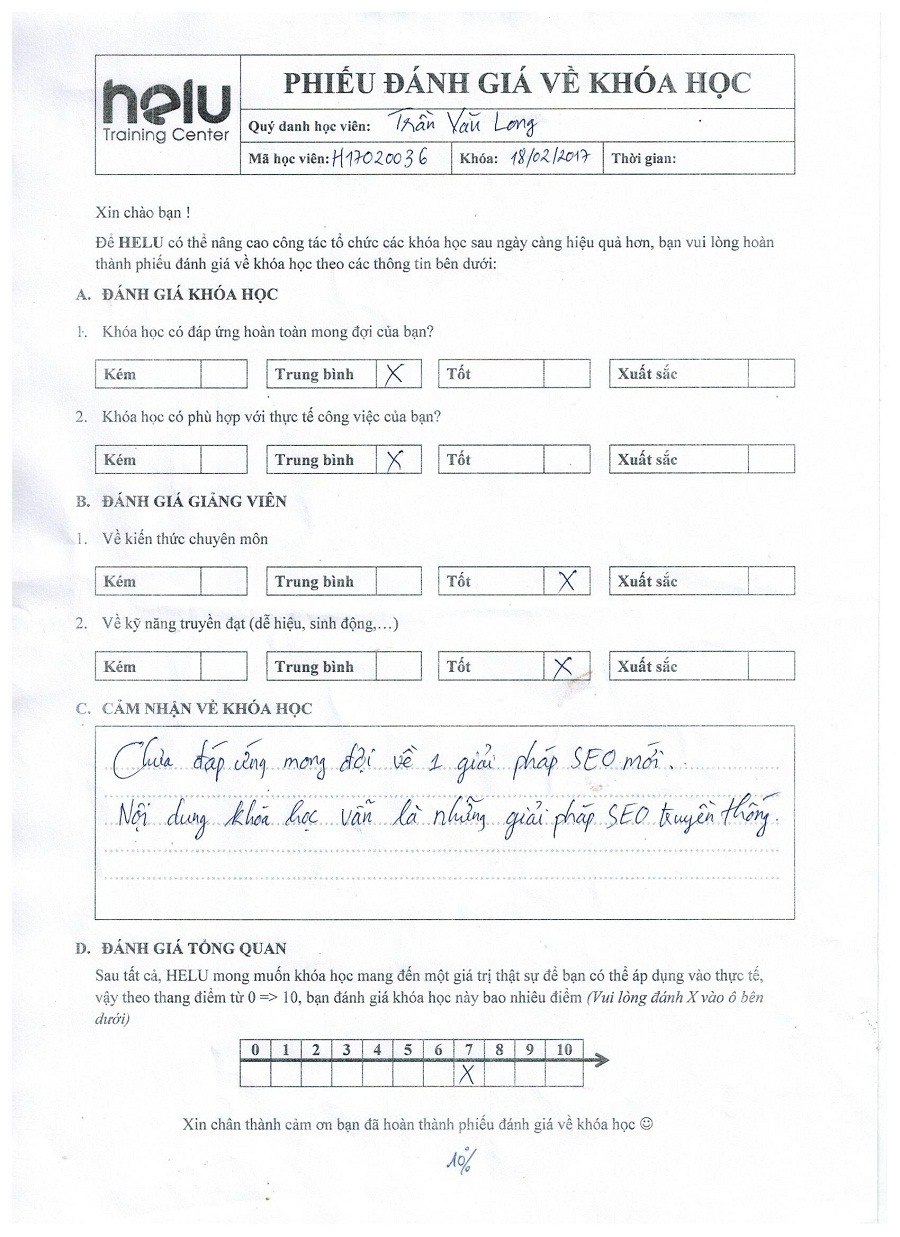 helu
Training Center
PHIẾU ĐÁNH GIÁ VỀ KHÓA HỌC
Quý danh học viên: Trần Văn Long
Mã học viên: H17020036 Khóa: 18/02/2017 Thời gian:
Xin chào bạn !
Để HELU có thể nâng cao công tác tổ chức các khóa học sau ngày càng hiệu quả hơn, bạn vui lòng hoàn
thành phiếu đánh giá về khóa học theo các thông tin bên dưới:
A. ĐÁNH GIÁ KHÓA HỌC
1. Khóa học có đáp ứng hoàn toàn mong đợi của bạn?
Kém Trung bình X Tốt Xuất sắc
2. Khóa học có phù hợp với thực tế công việc của bạn?
Kém Trung bình X Tốt Xuất sắc
B. ĐÁNH GIÁ GIẢNG VIÊN
1. Về kiến thức chuyên môn
Kém Trung bình Tốt X Xuất sắc
2. Về kỹ năng truyền đạt (dễ hiểu, sinh động,...)
Kém Trung bình Tốt X Xuất sắc
C. CẢM NHẬN VỀ KHÓA HỌC
Chưa đáp ứng mong đợi về 1 giải pháp SEO mới.
Nội dung khóa học vẫn là những giải pháp SEO truyền thống.
D. ĐÁNH GIÁ TỔNG QUAN
Sau tất cả, HELU mong muốn khóa học mang đến một giá trị thật sự để bạn có thể áp dụng vào thực tế,
vậy theo thang điểm từ 0 => 10, bạn đánh giá khóa học này bao nhiêu điểm (Vui lòng đánh X vào ô bên
dưới)
0 1 2 3 4 5 6 7 8 9 10
X
Xin chân thành cảm ơn bạn đã hoàn thành phiếu đánh giá về khóa học ☺
10%